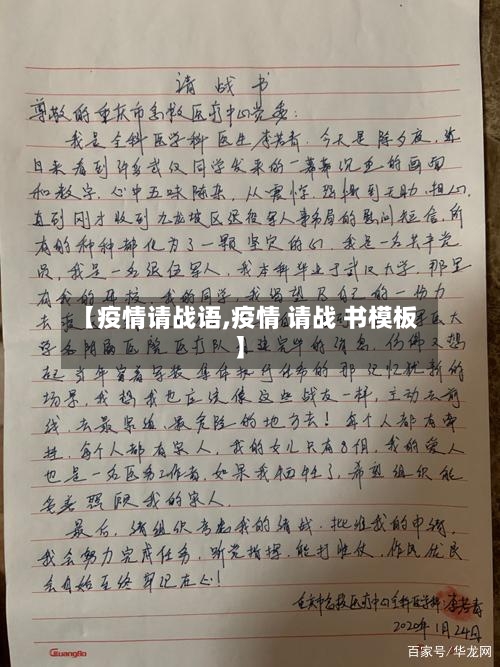 请战书
尊敬的重庆市急救医疗中心党委：
我是全科医学科医生李芸香，今天是除夕夜，当
日来看到许多武汉同学发来的一幕幕沉重的画面
和数字，心中五味陈杂，从震惊、恐惧到无助、担心，
直到刚才收到九龙坡区退役军人事务局的慰问短信，所
有的种种都化为了一颗坚定的心，我是一名共产党
员，我是一名退役军人，我本科毕业于武汉大学，那里
有我的母校、我的同学，我渴望尽自己的一份力
去
【疫情请战语,疫情 请战 书模板
】
学 附属医院医疗队 的消息，仿佛又想
起当年穿着军装集体执行任务的那 记忆犹新的
场景，我想我也应该像这些战友一样，主动去前
线，去最紧急、最危险的地方去！每个人都有牵
挂，每个人都有家人，我的女儿只有8個月，我的爱人
也是一名医务工作者，如果我牺牲了，希望组织能
多多照顾我的家人。
最后，请组织考虑我的请战，批准我的申请，
我会努力完成任务，听党指挥，能打胜仗，作风优良
会自始至终牢记在心！
重庆市急救医疗中心全科医学科：李芸香
2020年1月24日
GuangBo
百家号/华龙网